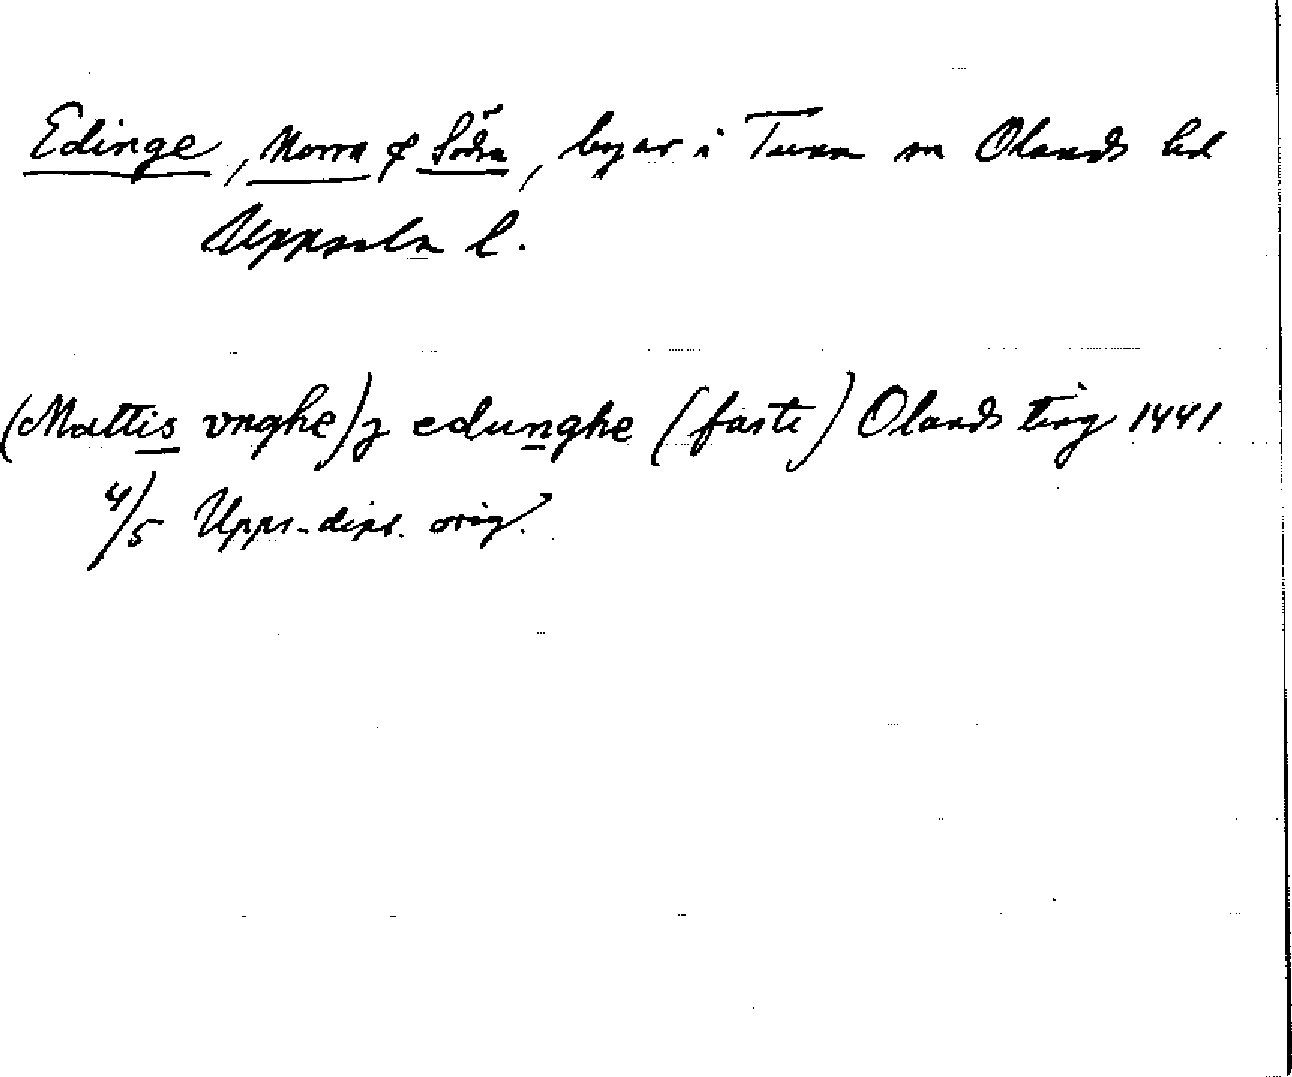 Edinge, Norra & Södra, byar i Tuna sn Olands hd
Uppsala l.
(Mattis vnghe) j edunghe (faste) Olands ting 1441
4/5 Upps-dipl. orig.